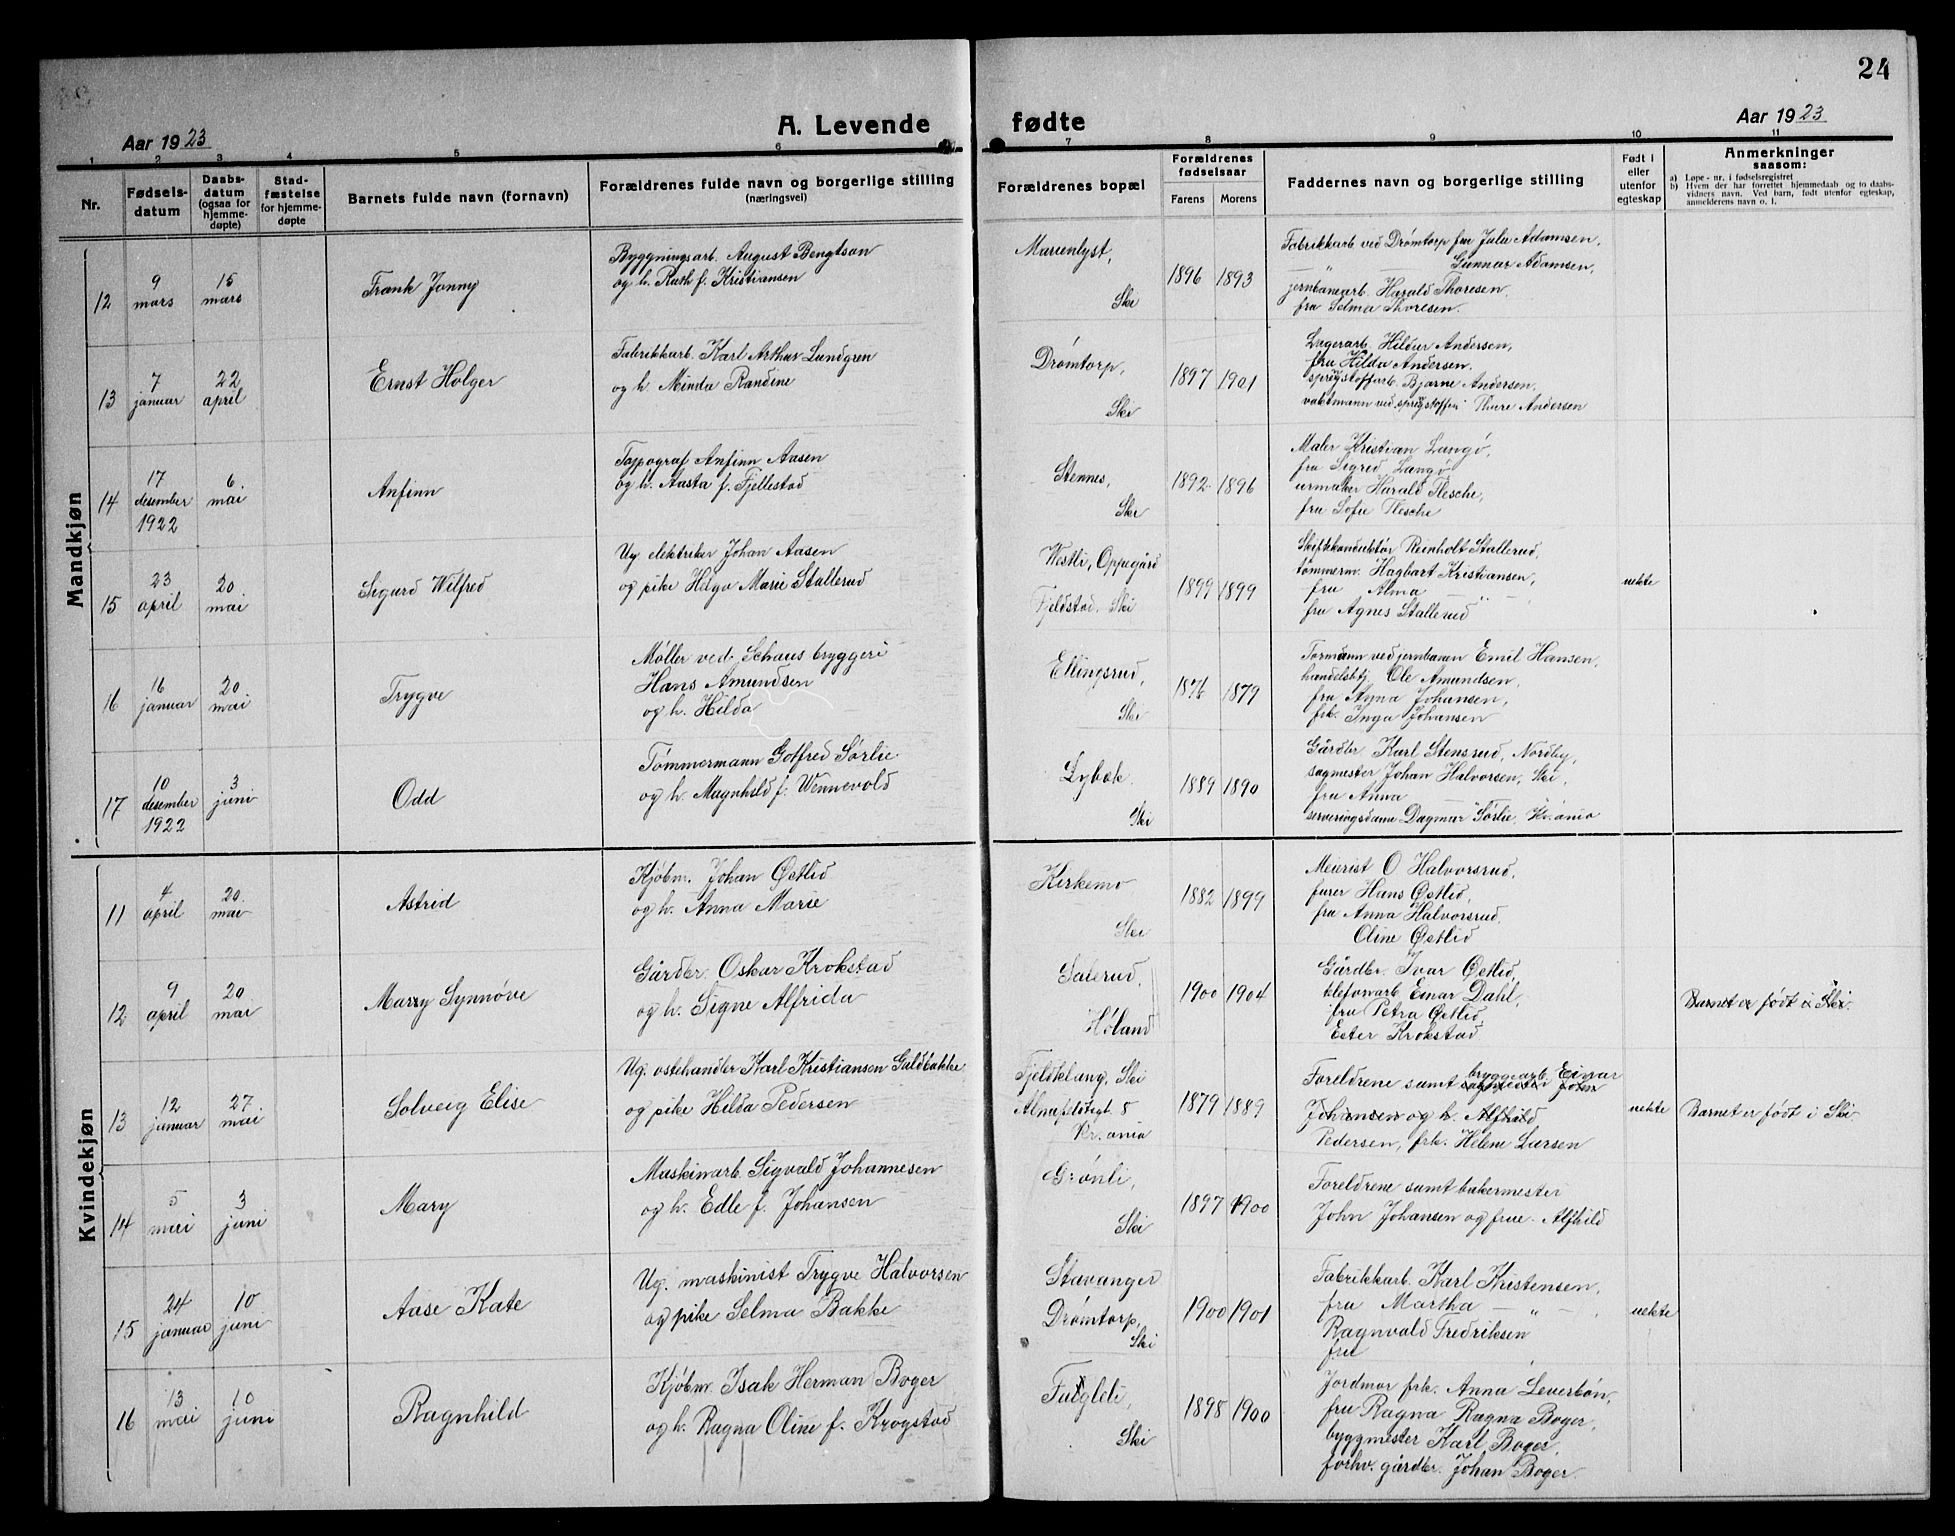 24
A. Levende fødte
Aar 1923
Aar 1923
1 2 3 4 5 6 7 8 9 10 11
Nr.
Fødsels-
datum
Daabs-
datum
(ogsaa for
hjemme-
døpte)
Stad-
fæstelse
for hjemme-
døpte
Barnets fulde navn (fornavn)
Forældrenes fulde navn og borgerlige stilling
(næringsvei)
Forældrenes bopæl
Forældrenes
fødselsaar
Farens Morens
Faddernes navn og borgerlige stilling
Født i
eller
utenfor
egteskap
Anmerkninger
saasom:
a) Løpe-nr. i fødselsregistret
b) Hvem der har forrettet hjemmedaab og to daabs-
vidners navn. Ved barn, født utenfor egteskap,
anmelderens navn o. l.
Mandkjøn
12
9
mars
15
mars
Frank Jonny
Byggningsarb. August Bengtson
og h. Ruth f. Kristiansen
Marienlyst,
Ski
1896 1893
Fabrikkarb ved Drømtorp fru Julie Adamsen,
— " Gunnar Adamsen,
jernbanearb. Harald Thoresen,
fru Selma Thoresen.
13
7
januar
22
april
Ernst Holger
Fabrikkarb. Karl Arthur Lundgren
og h. Minda Randine
Drømtorp,
Ski
1897 1901
Lagerarb. Hildur Andersen,
fru Hilda Andersen,
sprgstoffarb. Bjarne Andersen,
vaktmann ved sprgstoffen Thure Andersen
14
17
desember
1922
6
mai
Anfinn
Typograf Anfinn Aasen
og h. Aasta f. Fjellestad
Stennes,
Ski
1892 1896
Maler Kristian Langø,
fru Sigrid Langø,
urmaker Harald Flesche,
fru Sofie Flesche
15
23
april
20
mai
Sigurd Wilfred
Ug. elektriker Johan Aasen
og pike Helga Marie Stallerud
Westli, Oppegård
Fjeldstad, Ski
1899 1899
Skiftkonduktør Reinholt Stallerud,
tømmerm. Hagbart Kristiansen,
fru Alma — " —
fru Agnes Stallerud
uekte
16
16
januar
20
mai
Trygve
Møller ved Schaus bryggeri
Hans Amundsen
og h. Hilda
Ellingsrud,
Ski
1876 1879
Formann ved jernbanen Emil Hansen,
handelsbtj. Ole Amundsen,
fru Anna Johansen,
frk. Inga Johansen
17
10
desember
1922
3
juni
Odd
Tømmermann Gotfred Sørlie
og h. Magnhild f. Wennevold
Lybæk
Ski
1889 1890
Gårdbr Karl Stensrud, Nordby,
sagmester Johan Halvorsen, Ski,
fru Anna — " —
serveringsdame Dagmar Sørlie, Kr.ania
Kvindekjøn
11
4
april
20.
mai
Astrid
Kjøbm. Johan Østlid
og h. Anna Marie
Kirkemo
Ski
1882 1899
Meierist O Halvorsrud,
furer Hans Østlid,
fru Anna Halvorsrud,
Oline Østlid
12
9
april
20
mai
Marry Synnøve
Gårdbr. Oskar Krokstad
og h. Signe Alfrida
Saterud,
Høland
1900 1904
Gårdbr. Ivar Østlid,
telefonarb Einar Dahl,
fru Petra Østlid,
Ester Krokstad
Barnet er født i Ski.
13
12
januar
27
mai
Solveig Elise
Ug. ostehandler Karl Kristiansen Guldbakke
og pike Hilda Pedersen
Fjeldklang, Ski
8
Kr.ania
1879 1889
Foreldrene samt bryggearb. Einar
Johansen og h. Alfhild
Pedersen, frk. Helene Larsen
uekte
Barnet er født i Ski
14
5
mai
3
juni
Mary
Maskinarb. Sigvald Johannesen
og h. Edle f. Johansen
Grønli,
Ski
1897 1900
Foreldrene samt bakermester
John Johansen og frue Alfhild
15
24
januar
10
juni
Aase Kate
Ug. maskinist Trygve Halvorsen
og pike Selma Bakke
Stavanger
Drømtorp,
Ski
1900 1901
Fabrikkarb. Karl Kristensen,
fru Martha — " —,
Ragnvald Fredriksen
fru
uekte
16
13
mai
10
juni
Ragnhild
Kjøbm. Isak Herman Boger
og h. Ragna Oline f. Krogstad
Fugleli,
Ski
1898 1900
Jordmor frk. Anna Leverbøn,
fru Ragna Ragna Boger,
byggmester Karl Boger,
forhv. gårdbr. Johan Boger.